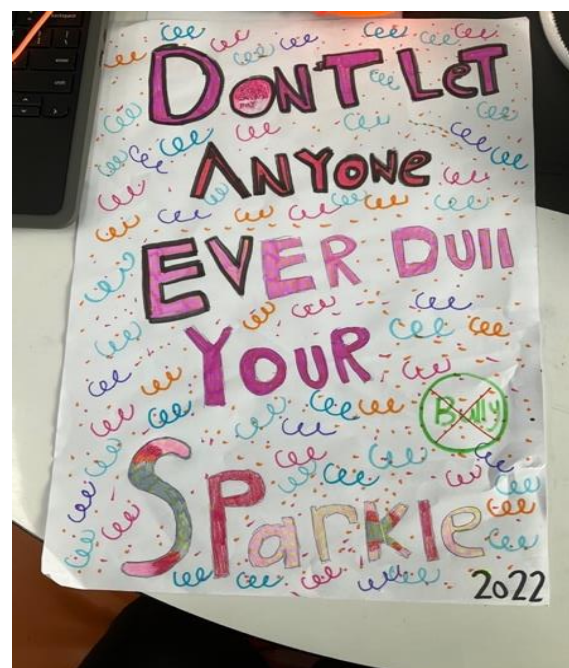 DON'T LET
ANYONE
EVER DUll
YOUR
Bully
SParkle
2022